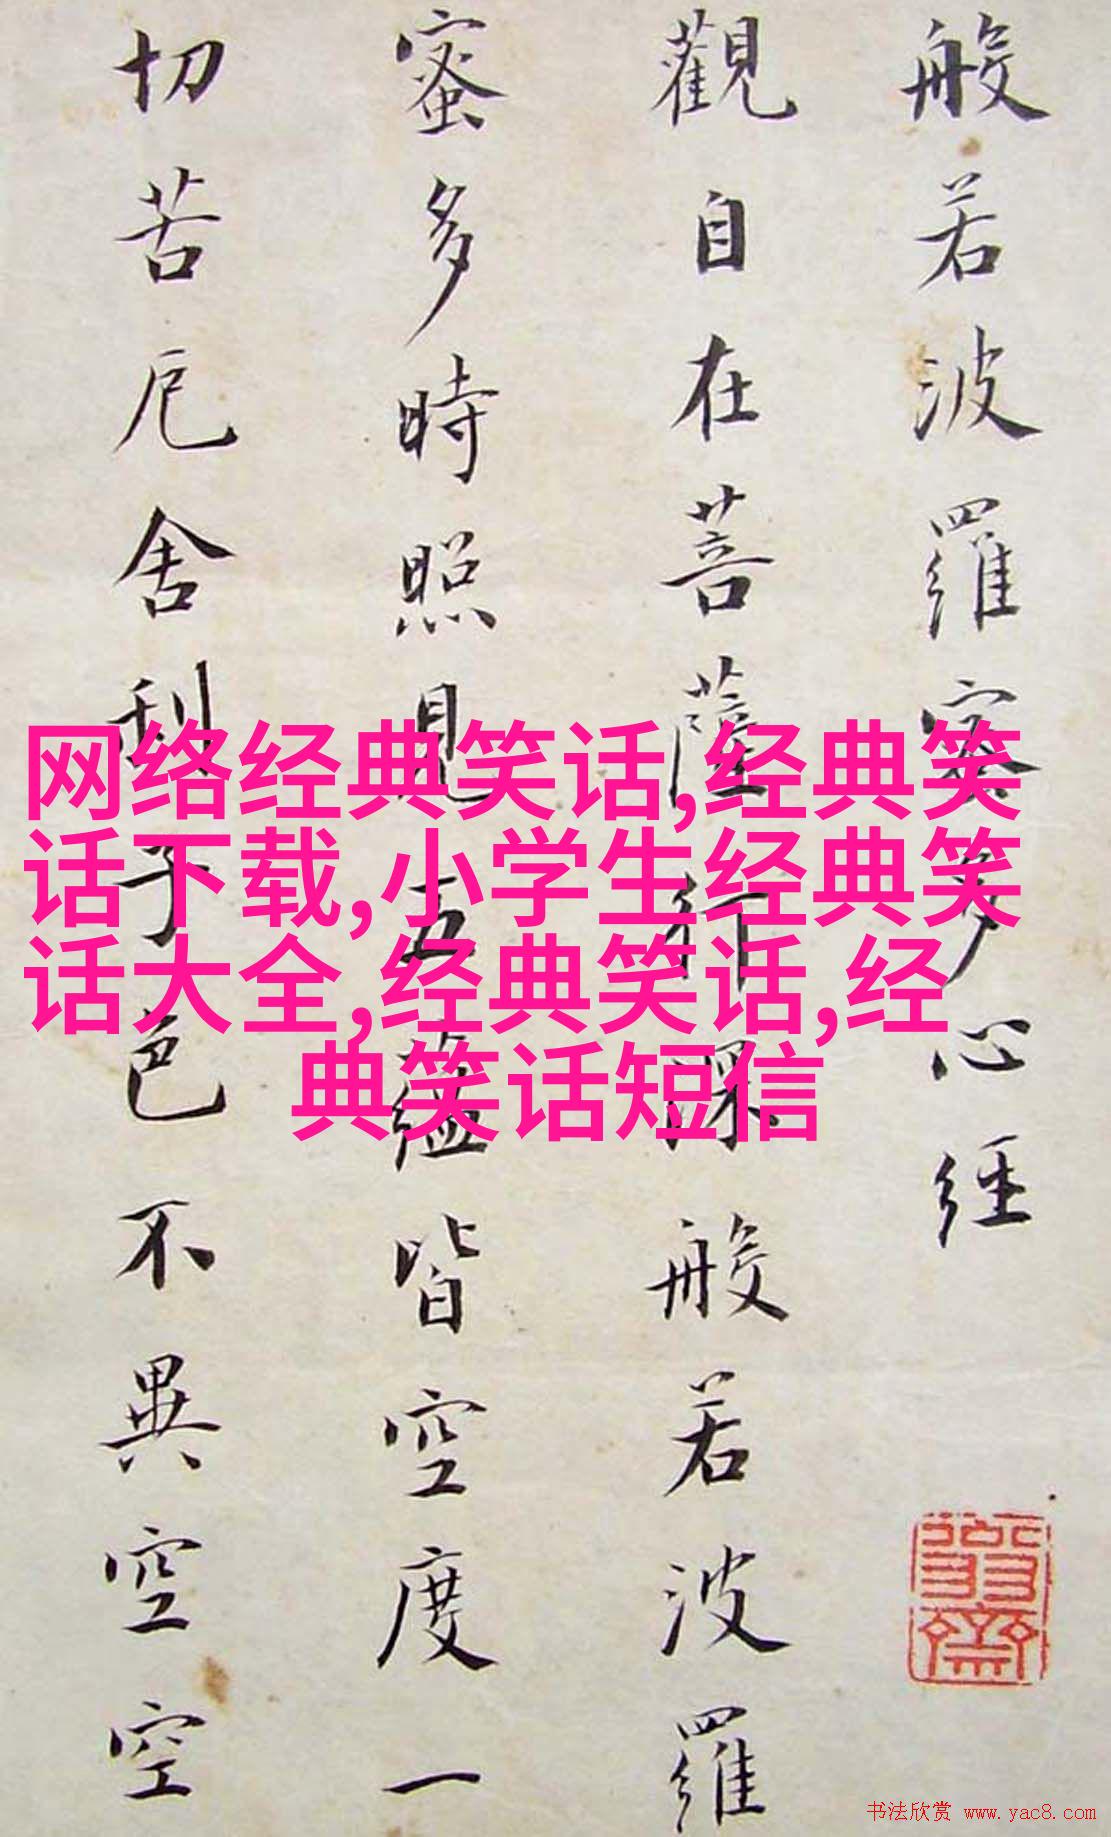 般若波羅蜜多心經
觀自在菩薩行深般若波羅
蜜多時照見五蘊皆空度一
切苦厄舍利子色不異空空
网络经典笑话,经典笑
话下载,小学生经典笑
话大全,经典笑话,经
典笑话短信
书法欣赏 www.yac8.com